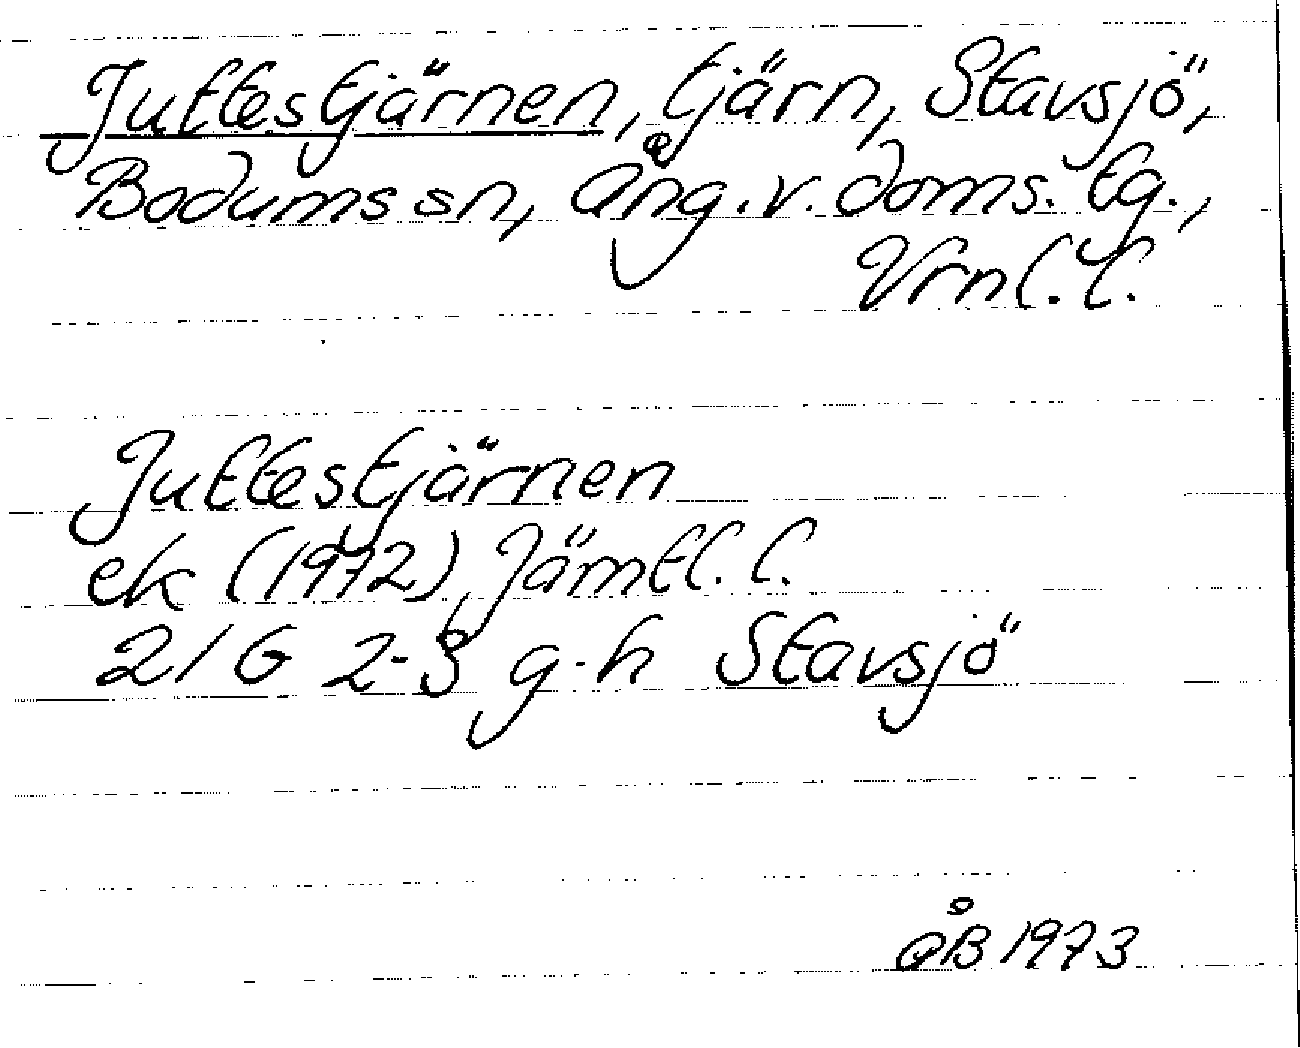 Juttestjärnen, tjärn, Stavsjö,
Bodums sn, Ång. v. doms. tg.,
Vrnl. l.
Juttestjärnen
ek (1972), Jämtl. l.
21 G 2-3 g-h Stavsjö
ÅB 1973